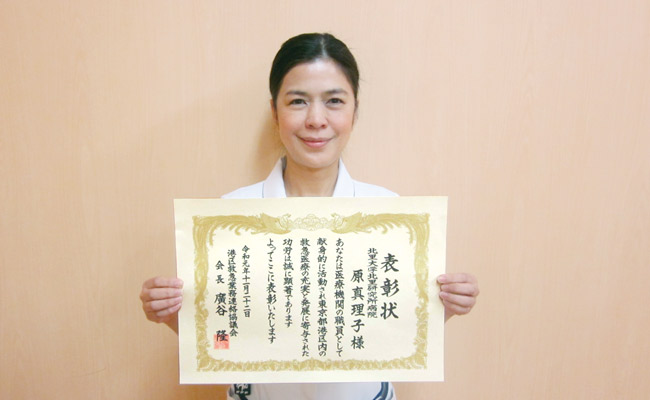 表彰状
北里大学北里研究所病院
原真理子様
あなたは医療機関の職員として
献身的に活動され東京都港区内の
救急医療の充実と発展に寄与された
功労は誠に顕著であります
よってここに表彰いたします
令和元年十一月二十二日
港区救急業務連絡協議会
会長 廣谷 隆